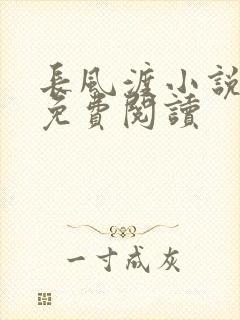 長風渡小說
免費閱讀
一寸成灰